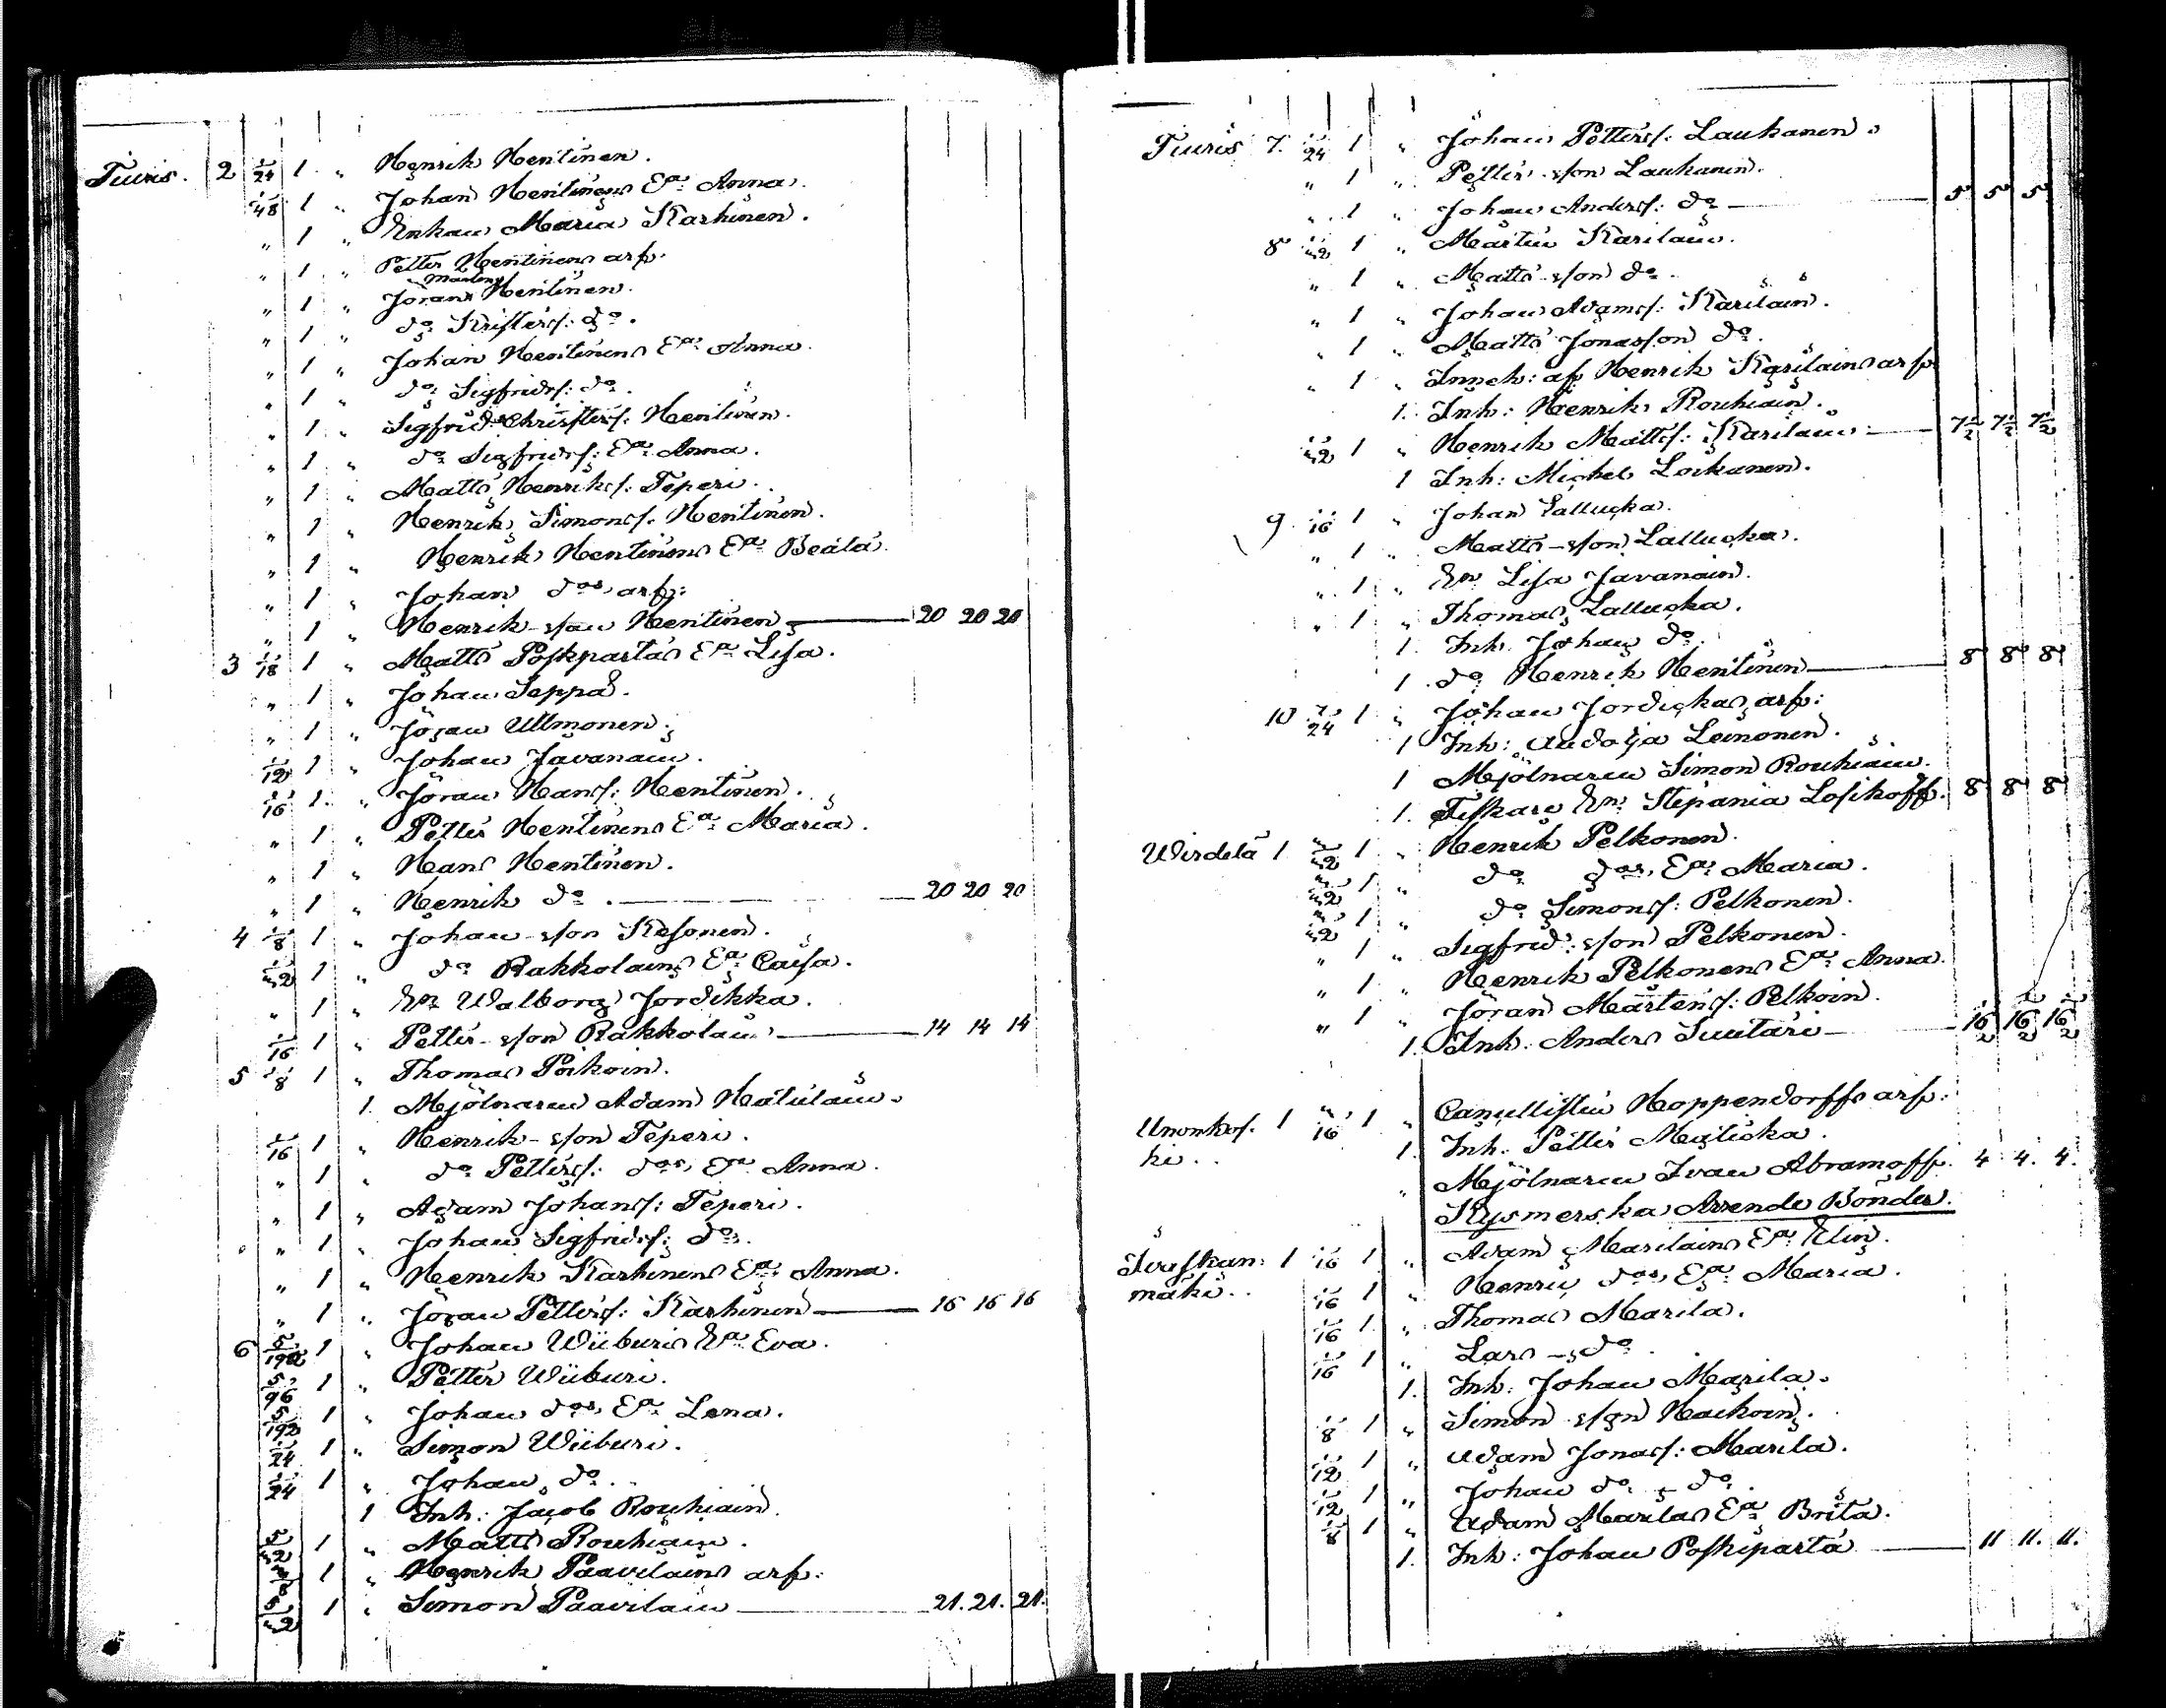 Tiuris. 2 1/24 1 " Henrik Hentinen.
1/48 1 " Johan Hentinens Ea: Anna.
" 1 " Enkan Maria Karhinen.
" 1 " Petter Hentinens arf:
Mårtens
" 1 " Jöran Hentinen.
" 1 " do Kristers: do.
" 1 " Johan Hentinens Ea: Anna.
" 1 " do Sigfrids: do.
" 1 " Sigfrid Christers: Hentinen.
" 1 " do Sigfrids: Ea: Anna.
" 1 " Matts Henriks: Teperi.
" 1 " Henrik Simons: Hentinen.
" 1 " Henrik Hentinens Ea: Beata.
" 1 " Johan dos arf:
" 1 " Henrik -son Hentinen 20 20 20
3 1/18 1 " Matts Poskpartas Ea: Lisa.
" 1 " Johan Seppä.
" 1 " Jöran Ulmonen.
1/12 1 " Johan Javanain.
1/16 1. " Jöran Hans: Hentinen.
" 1 " Petter Hentinens Ea: Maria.
" 1 " Hans Hentinen.
" 1 " Henrik do. 20 20 20
4 1/8 1 " Johan -son Kesonen.
1 " do Rakkolains Ea: Caisa.
" 1 " En: Walborg Jordikka.
1/16 1 " Petter -son Rakkolain 14 14 14
5 1/8 1 " Thomas Poikoin.
1. Mjölnaren Adam Hatulain.
1/16 1 " Henrik -son Teperi.
" 1 " do Petters: dos, Ea: Anna.
" 1 " Adam Johans: Teperi.
" 1 " Johan Sigfrids: do.
" 1 " Henrik Karhinens Ea: Anna.
" 1 " Jöran Petters: Karhinen 16 16 16
6 5/192 1 " Johan Wiiburis Ea: Eva.
5/96 1 " Petter Wiiburi.
5/192 1 " Johan dos, Ea: Lena.
1/24 1 " Simon Wiiburi.
1/24 1 " Johan do.
1 Inh: Jacob Rouhiain.
1 " Matts Rouhiain.
1 " Henrik Paavilains arf:
1 " Simon Paavilain 21. 21. 21.
Tiuris 7. 1/24 1 " Johan Petters: Laukanen.
" 1 " Petter -son Laukanen.
" 1 " Johan Anders: do 5 5 5
8 1 " Mårtin Karilain.
" 1 " Matts -son do.
" 1 " Johan Adams: Karilain.
" 1 " Matts Jonasson do.
" 1 " Inneh: af Henrik Karilains arf:
1. Inh: Henrik Rouhiain.
1 " Henrik Matts: Karilain 7 1/2 7 1/2 7 1/2
1 Inh: Michel Loikanen.
9. 1/16 1 " Johan Lallucka.
" 1 " Matts -son Lallucka.
" 1 " En: Lisa Javanain.
" 1 " Thomas Lallucka.
1. Inh. Johan do.
1 do Henrik Hentinen 8 8 8
10 1/24 1 " Johan Jordickas arf:
1 Inh: Audotja Leinonen.
1 Mjölnaren Simon Rouhiain.
1. Fiskare En: Stepania Losikoff. 8 8 8
Wirdelä 1 1 " Henrik Pelkonen.
1 " do dos, Ea: Maria.
1 " do Simons: Pelkonen.
" 1 " Sigfrid: -son Pelkonen.
" 1 " Henrik Pelkonens Ea: Anna.
" 1 " Jöran Mårtens: Pelkoin.
1. Inh: Anders Suutari 16 1/2 16 1/2 16 1/2
Unonkos. 1 1/16 1 " Canellistin Hoppendorffs arf:
ki. . 1. Inh: Petter Maticka.
" Mjölnaren Ivan Abramoff. 4 4. 4.
Kysmerska Arrende Bönder.
1 1/16 1 " Adam Marilains Ea: Elin.
mäki. . 1/16 1 " Henric dos, Ea: Maria.
1/16 1. " Thomas Marila.
1/16 1 " Lars - do
1. Inh: Johan Marila.
1/8 1 " Simon -son Haikoin.
1/12 1 " Adam Jonas: Marila.
1/12 1 " Johan do - do.
1/8 1 " Adam Marilas Ea: Brita.
1. Inh: Johan Poskiparta 11 11. 11.